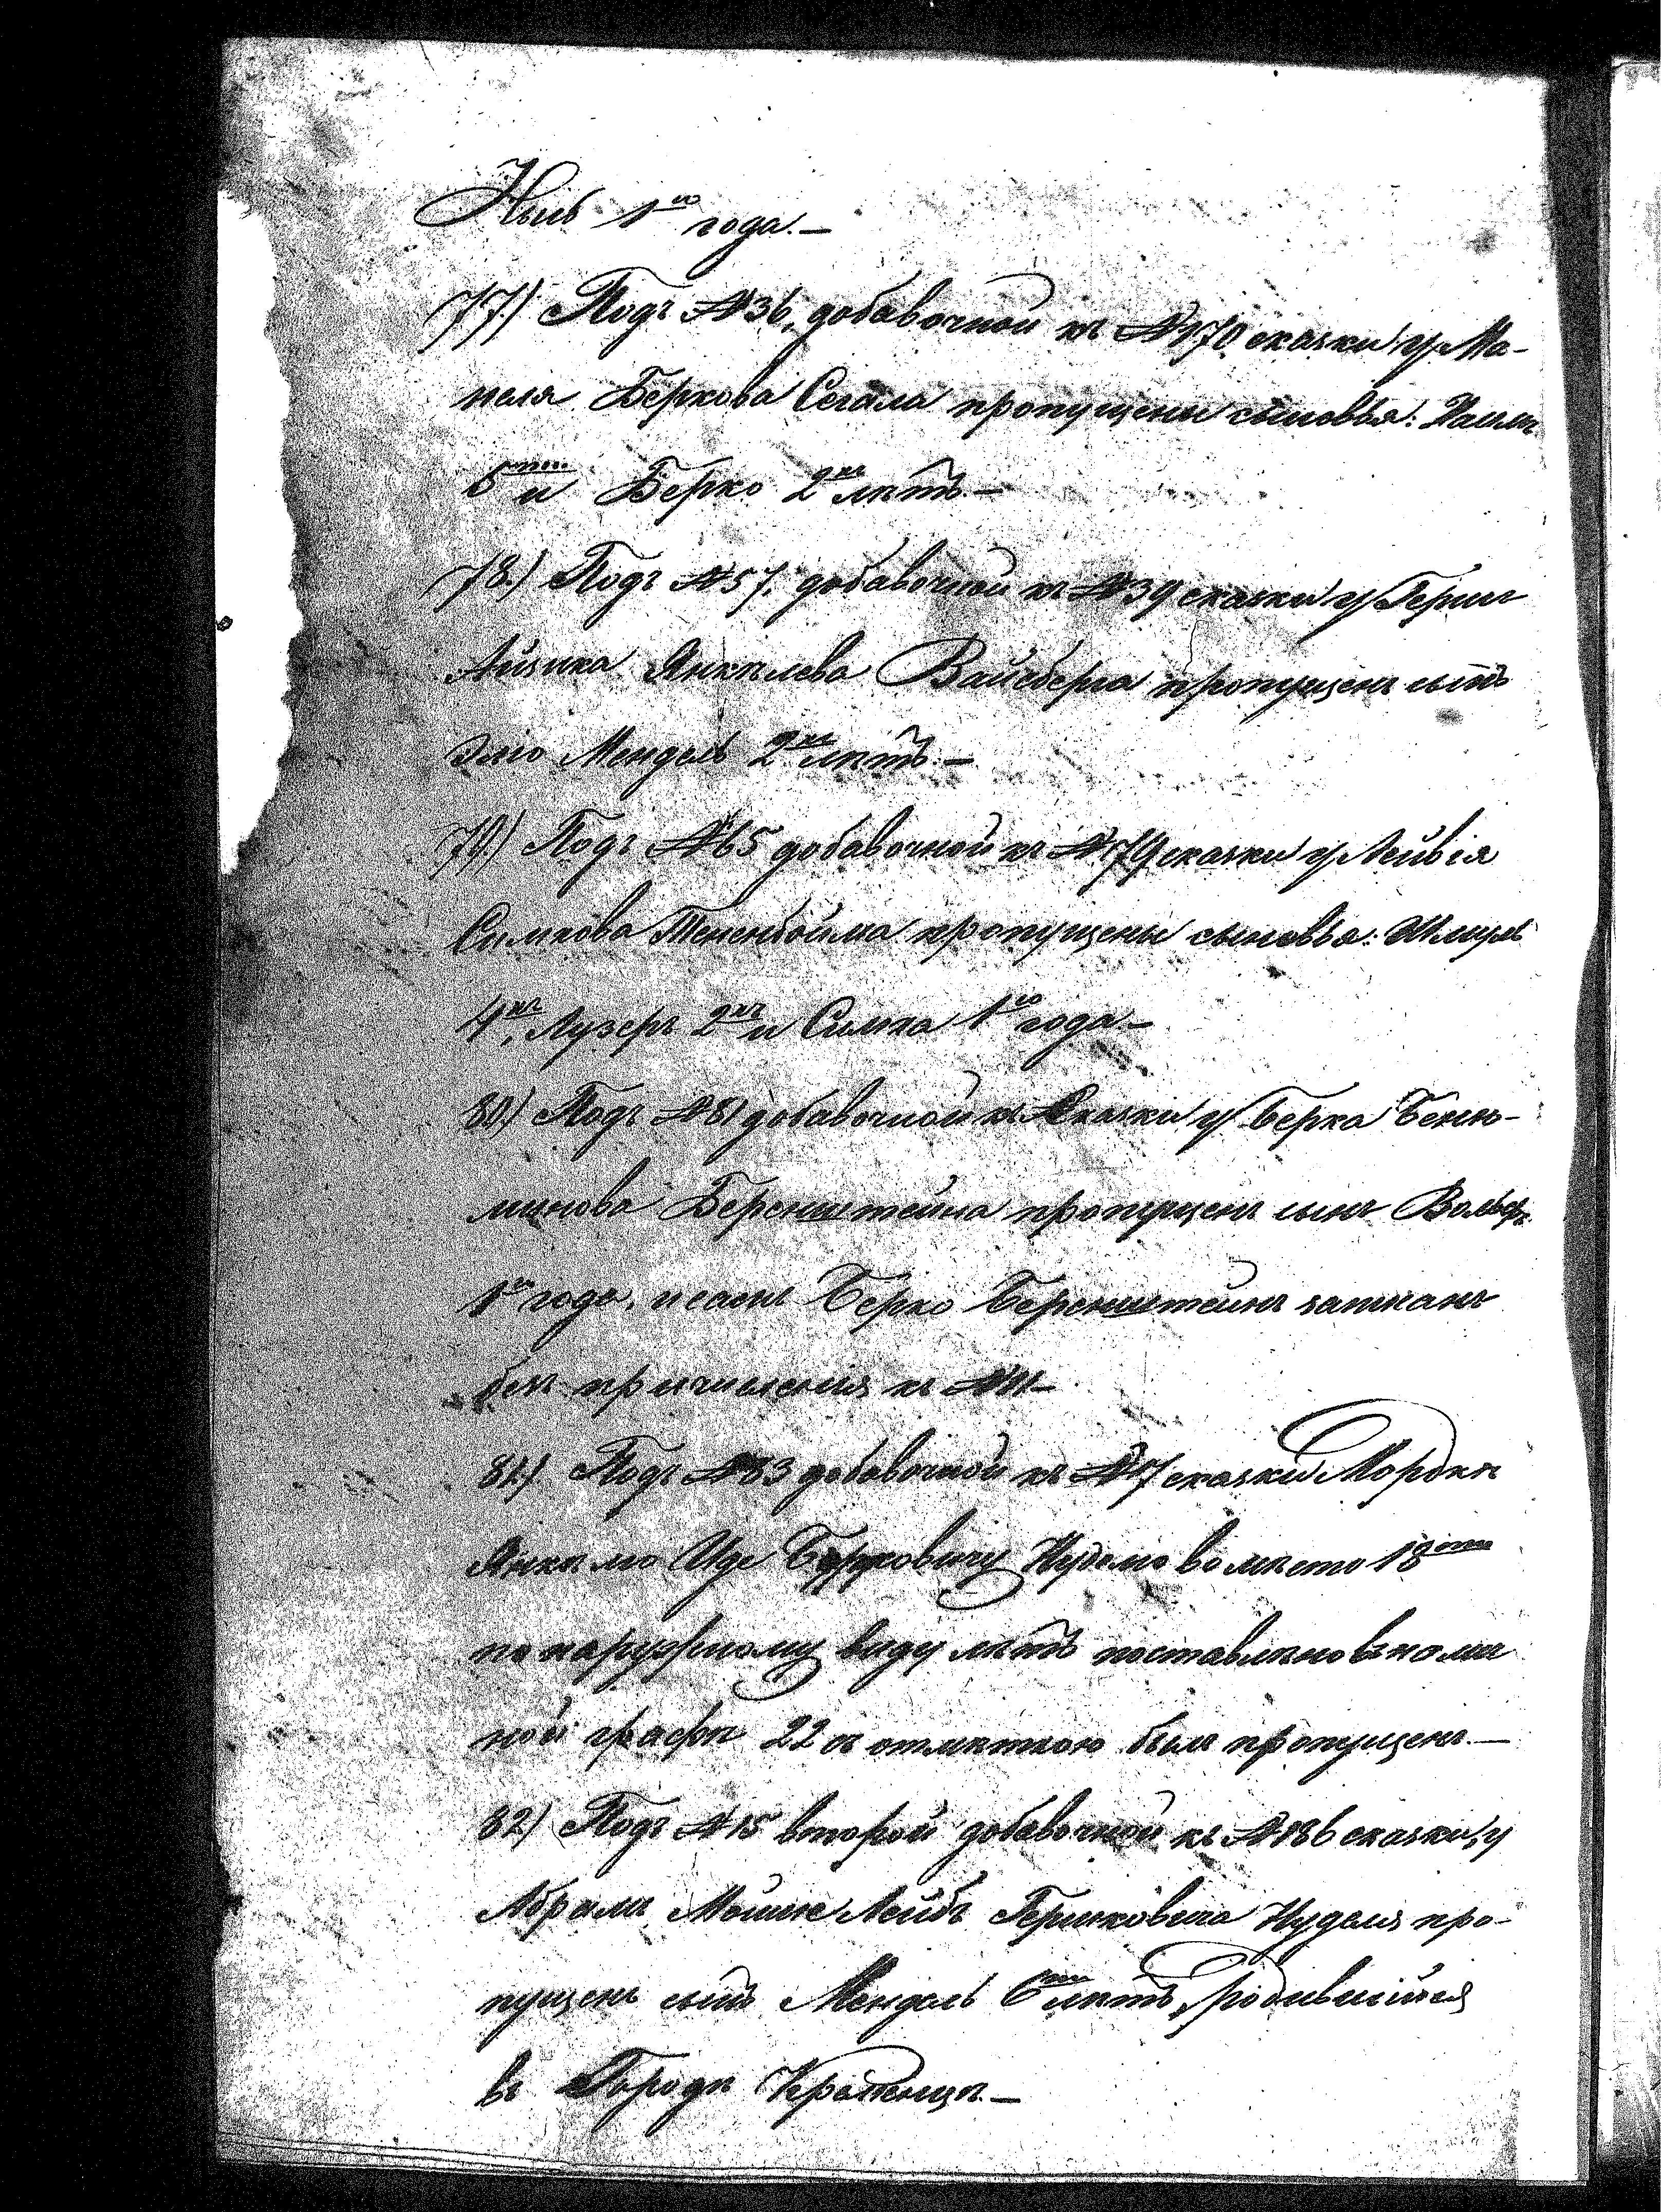 1го года. —
77.) Подъ №36. добавочной къ №170 сказки у Ма-
неля Беркова Сегала пропущены сыновья:
5ти и Берко 2хъ лѣтъ —
78.) Подъ №57. добавочной къ №39 сказки у Герша
Айзика Янкелева Вайсберга пропущенъ сынъ
Элio Мендель 2хъ лѣтъ —
79.) Подъ №65 добавочной къ №79 сказки у Лейвія
Симхова Тененбойма пропущены сыновья: Шмуль
4хъ, Лузеръ 2хъ и Симха 1го года —
80.) Подъ №81 добавочной къ сказки у Берка Беню-
минова Беренштейна пропущенъ сынъ Вольфъ
1го года, и самъ Берко Беренштейнъ записанъ
безъ причисленія къ №11 —
81.) Подъ №83 добавочной къ №7 сказки Мордки
Янкелю Иде Берковичу Нуделю вомѣсто 18ти
по наружному виду лѣтъ поставлено въ полн
ной графѣ 22 съ отмѣткою былъ пропущенъ. —
82.) Подъ №15 второй добавочной къ №186 сказки, у
Абрамъ Мошке Лейбъ Гершковича Нуделя про-
пущенъ сынъ Мендель 6ти лѣтъ, родившійся
въ Городѣ Кременцѣ. —